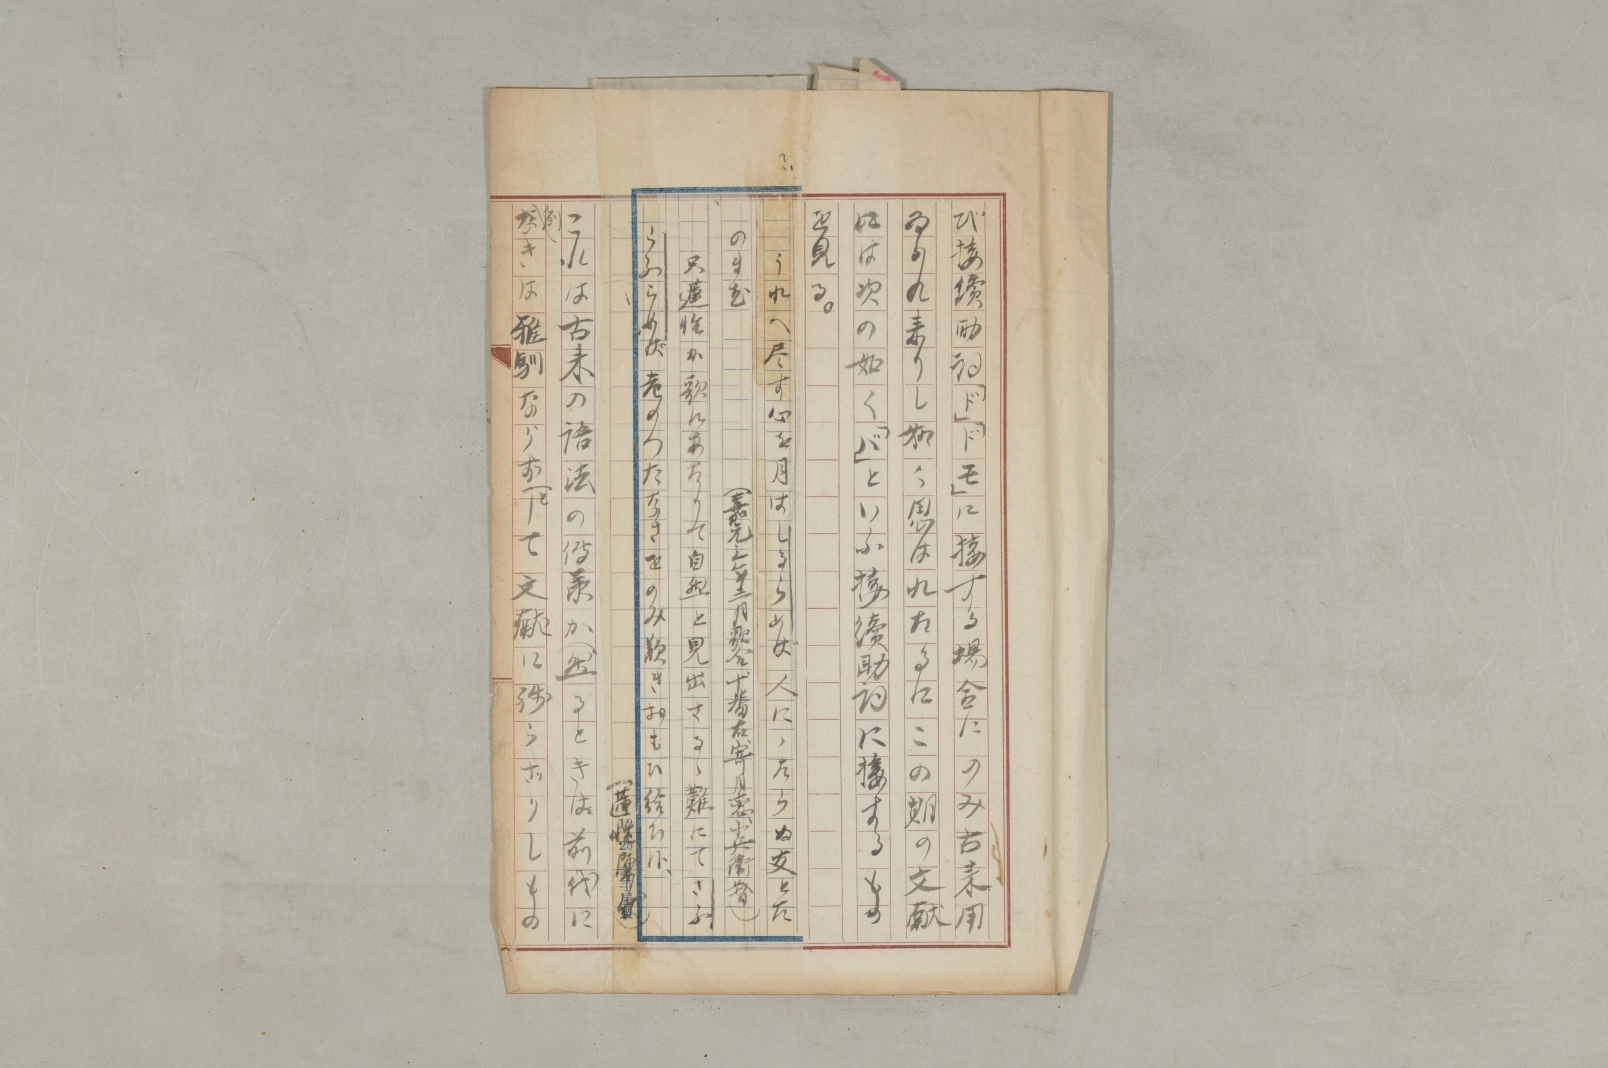 び接續助詞「ド」「ドモ」に接する場合にのみ古来用
ゐられ来りし如く思はれたるにこの期の文献
には次の如く「バ」といふ接續助詞に接するもの
を見る。
うれへ尽す心を月はしるらめば人にゝたらぬ友とた
のまむ
(嘉元三年三月歌合十番右寄月恋、兵衛督)
只蓮性か歌にあたりて自然と見出さるゝ難にてさふ
らふらめば老のつたなさをのみ歎きおもひ給ひ
(蓮性陳状)
これは古来の語法の傳承が然るときは前代に
例なきは雅馴ならずとして文献に残らざりしもの